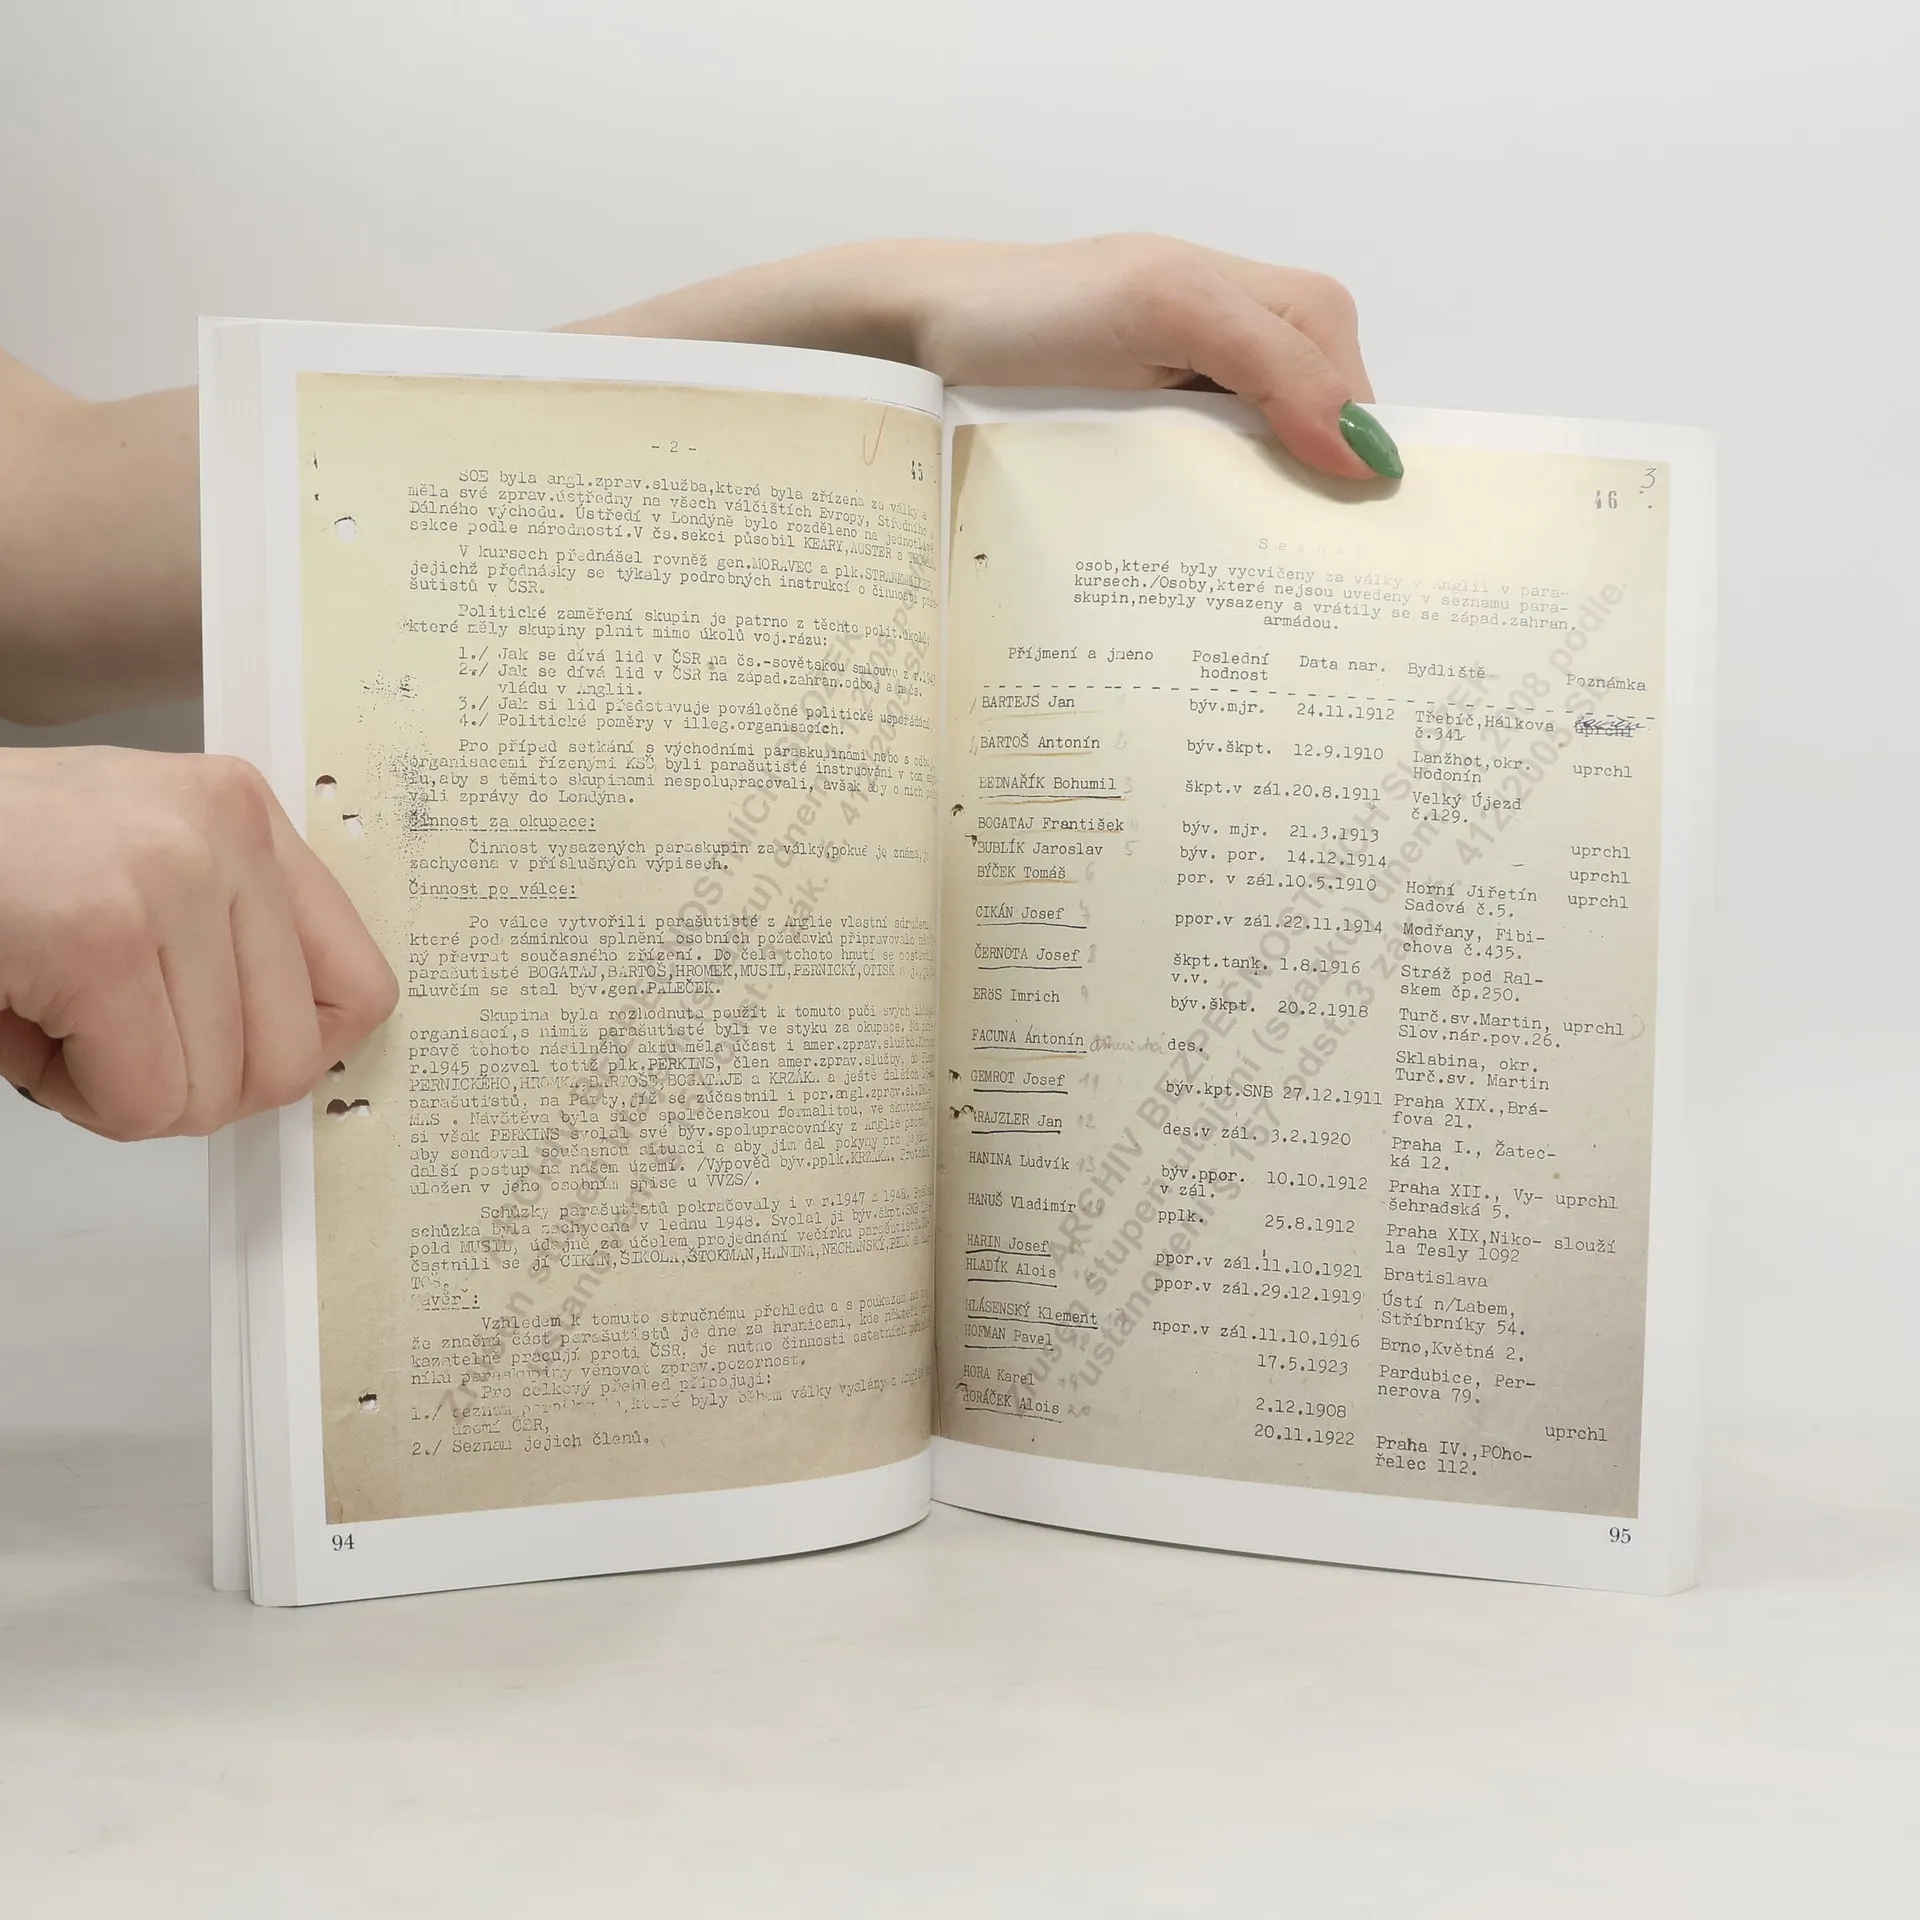 - 2 -
45
SOE byla angl.zprav.služba,která byla zřízena za války a
měla své zprav.ústředny na všech válčištích Evropy, Středního a
Dálného východu. Ústředí v Londýně bylo rozděleno na jednotlivé
sekce podle národností.V čs.sekci působil KEARY,AUSTER a
V kursech přednášel rovněž gen.MORAVEC a plk.
jejichž přednášky se týkaly podrobných instrukcí o činnosti
šutistů v ČSR.
Politické zaměření skupin je patrno z těchto polit.úkolů,
které měly skupiny plnit mimo úkolů voj.rázu:
1./ Jak se dívá lid v ČSR na čs.-sovětskou smlouvu z r.1943
2./ Jak se dívá lid v ČSR na západ.zahran.odboj a na čs.
vládu v Anglii.
3./ Jak si lid představuje poválečné politické uspořádání,
4./ Politické poměry v illeg.organisacích.
Pro případ setkání s východními paraskupinami nebo s
organisacemi řízenými KSČ, byli parašutisté instruováni v tom
ru,aby s těmito skupinami nespolupracovali, avšak aby o nich
vali zprávy do Londýna.
Činnost za okupace:
Činnost vysazených paraskupin za války,pokud je známa,
zachycena v příslušných výpisech.
Činnost po válce:
Po válce vytvořili parašutisté z Anglie vlastní
které pod záminkou splnění osobních požadavků připravovalo
ný převrat současného zřízení. Do čela tohoto hnutí se
parašutisté BOGATAJ,BARTOŠ,HROMEK,MUSIL,PERNICKÝ,OTISK
mluvčím se stal býv.gen.PALEČEK.
Skupina byla rozhodnuta použít k tomuto puči svých
organisací,s nimiž parašutisté byli ve styku za okupace. Na
pravě tohoto násilného aktu měla účast i amer.zprav.služba.
r.1945 pozval totiž plk.PERKINS, člen amer.zprav.služby, do
PERNICKÉHO,HROMKA,BARTOŠE,BOGATAJE a KRZÁKA a ještě dalších
parašutistů, na Party,jíž se zúčastnil i por.angl.zprav.sl.
MAS . Návštěva byla sice společenskou formalitou, ve skutečnosti
si však PERKINS svolal své býv.spolupracovníky z Anglie proto,
aby sondoval současnou situaci a aby jim dal pokyny pro jejich
další postup na našem území. /Výpověď býv.pplk.KRZÁKA. Protokol
uložen v jeho osobním spise u VVZS/.
Schůzky parašutistů pokračovaly i v r.1947 a 1948.
schůzka byla zachycena v lednu 1948. Svolal ji býv.škpt.SNB
pold MUSIL, údajně za účelem projednání večírku parašutistů.
častnili se jí CIKÁN,ŠIKOLA,ŠTOKMAN,HANINA,NECHANSKÝ,PELC a
TOŠ.
Závěr :
Vzhledem k tomuto stručnému přehledu a s poukazem na
že značná část parašutistů je dne za hranicemi, kde někteří
kazatelně pracují proti ČSR, je nutno činnosti ostatních
níků paraskupiny věnovat zprav.pozornost.
Pro celkový přehled připojuji:
1./ Seznam které byly během války vyslány z Anglie
území ČSR,
2./ Seznam jejich členů.
94
3
46
Seznam
osob,které byly vycvičeny za války v Anglii v para-
kursech./Osoby,které nejsou uvedeny v seznamu para-
skupin,nebyly vysazeny a vrátily se se západ.zahran.
armádou.
Příjmení a jméno Poslední hodnost Data nar. Bydliště Poznámka
BARTEJS Jan býv.mjr. 24.11.1912 Třebíč,Hálkova č.341 uprchl
BARTOŠ Antonín býv.škpt. 12.9.1910 Lanžhot,okr. Hodonín uprchl
BEDNAŘÍK Bohumil 3 škpt.v zál.20.8.1911 Velký Újezd č.129.
BOGATAJ František býv. mjr. 21.3.1913 uprchl
BUBLÍK Jaroslav 5 býv. por. 14.12.1914 uprchl
BÝČEK Tomáš 6 por. v zál.10.5.1910 Horní Jiřetín Sadová č.5. uprchl
CIKÁN Josef 7 ppor.v zál.22.11.1914 Modřany, Fibi- chova č.435.
ČERNOTA Josef 8 škpt.tank. v.v. 1.8.1916 Stráž pod Ral- skem čp.250.
ERöS Imrich 9 býv.škpt. 20.2.1918 Turč.sv.Martin, Slov.nár.pov.26. uprchl
FACUNA Antonín des. Sklabina, okr. Turč.sv. Martin
GEMROT Josef 11 býv.kpt.SNB 27.12.1911 Praha XIX.,Brá- fova 21.
GRAJZLER Jan 12 des.v zál. 3.2.1920 Praha I., Žatec- ká 12.
HANINA Ludvík 13 býv.ppor. v zál. 10.10.1912 Praha XII., Vy- šehradská 5. uprchl
HANUŠ Vladimír pplk. 25.8.1912 Praha XIX,Niko- la Tesly 1092 slouží
HARIN Josef ppor.v zál.11.10.1921 Bratislava
HLADÍK Alois ppor.v zál.29.12.1919 Ústí n/Labem, Stříbrníky 54.
HLÁSENSKÝ Klement npor.v zál.11.10.1916 Brno,Květná 2.
HOFMAN Pavel 17.5.1923 Pardubice, Per- nerova 79.
HORA Karel 19 2.12.1908 uprchl
HORÁČEK Alois 20 20.11.1922 Praha IV.,POho- řelec 112.
95